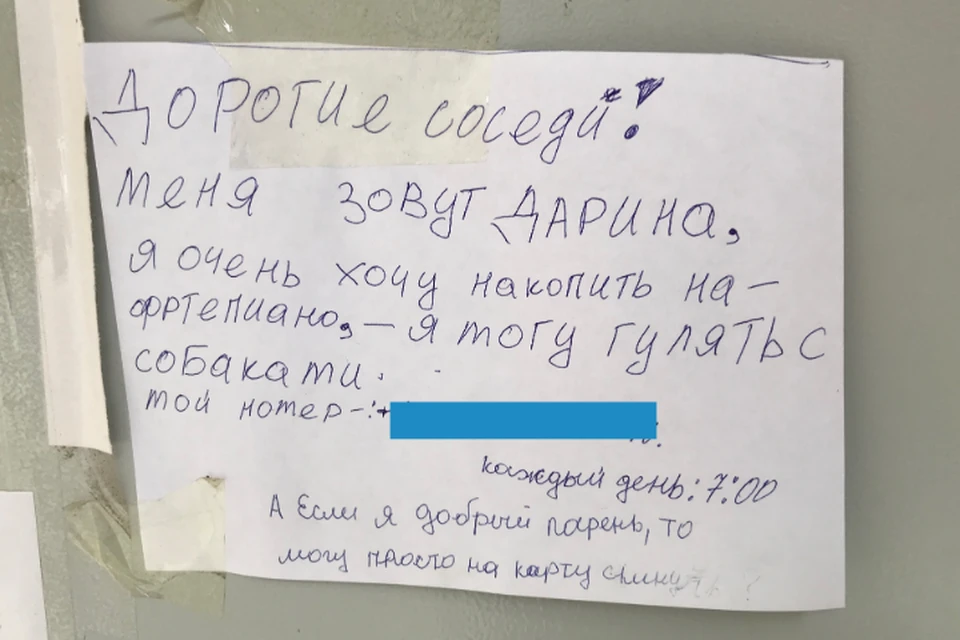 Дорогие соседи!
Меня зовут Дарина,
я очень хочу накопить на-
фртепиано,-я могу гулять с
собаками.
мой номер-:+
каждый день: 7:00
А если я добрый парень, то
могу просто на карту скинуть?